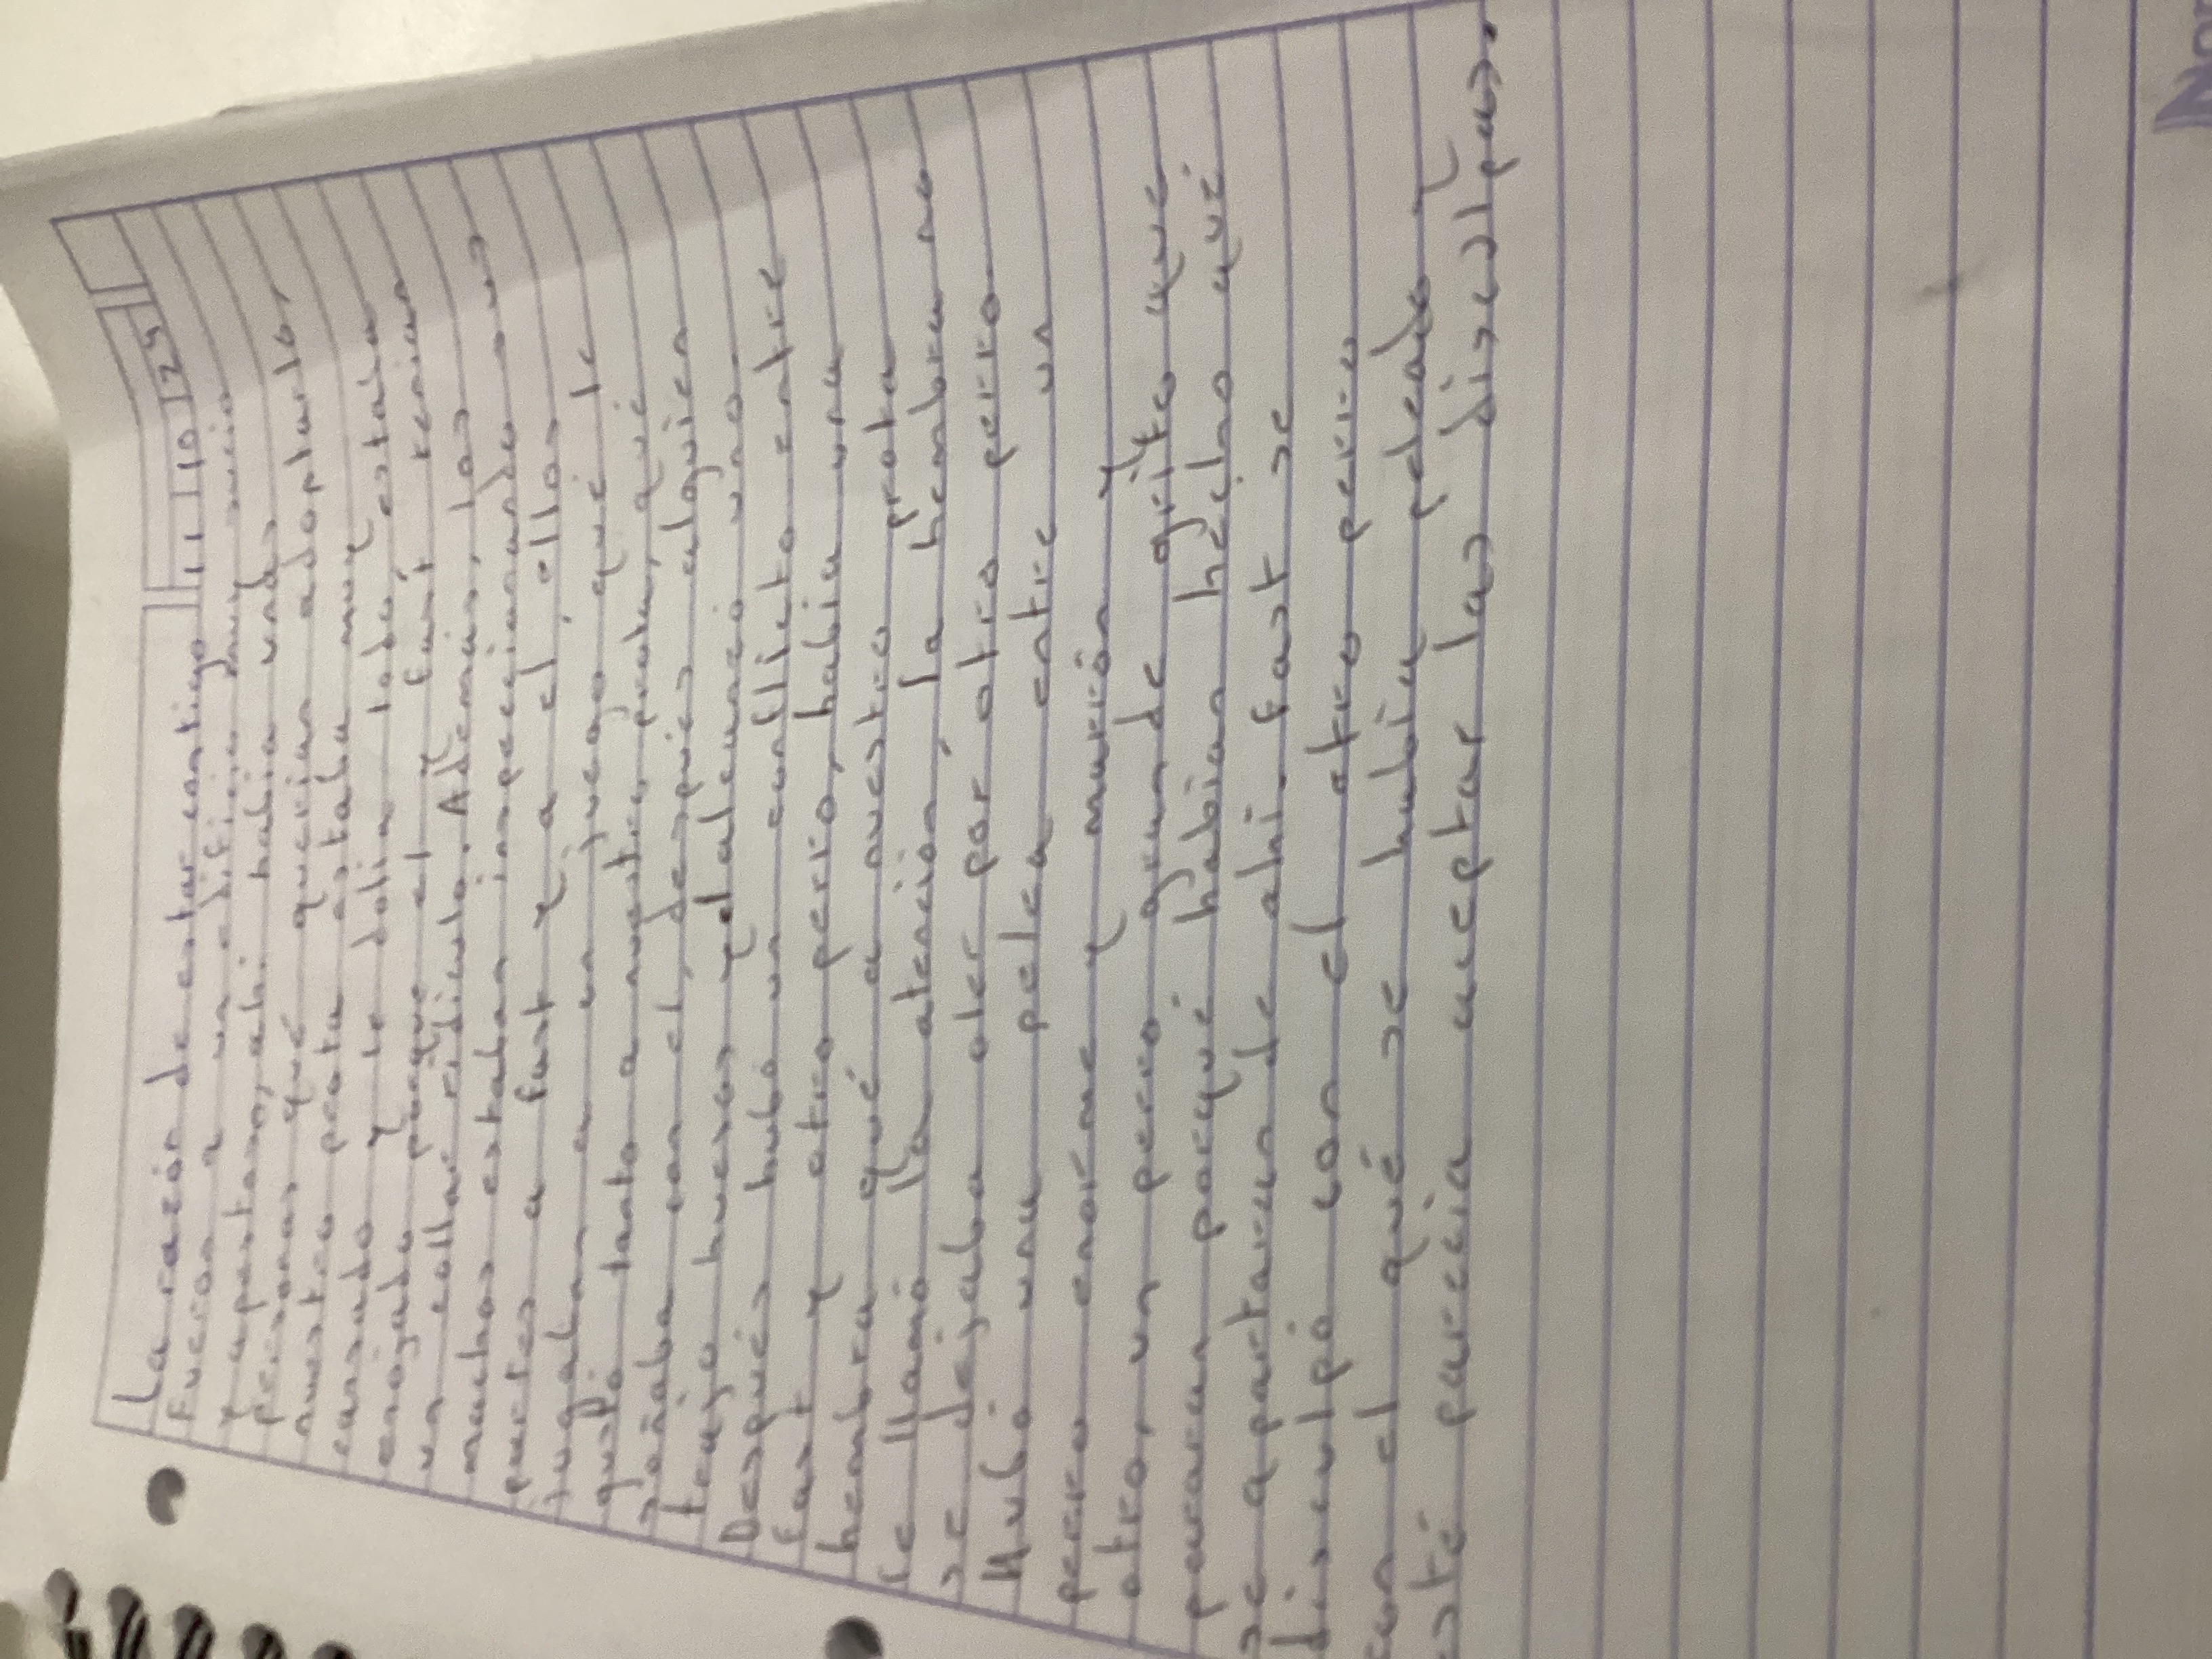 La razón de estar contigo 11 10 24
Fueron a un edificio muy sucio
y apestoso, ahi habia unas
personas qué querian adoptarlo,
nuestro prota estaba muy
cansado y le dolia todo, estaba
enojado porque el y fast tenian
un collar ridiculo. Además, los
machos estaban inspeccionando sus
partes a fast y a el, ellos
jugaban a un juego qué le
gustó tanto a nuestro prota, qué
soñaba con el, después alguien
trajo huesos y el alcanzó uno.
Después hubo un conflicto entre
fast y otro perro, habia una
hembra qué a nuestro prota
le llamó la atención, la hembra no
se dejaba oler por otro perro.
Hubó una pelea entre un
perro enorme y marrón y
otro, un perro grande grito que
pararan porqué habian hecho qué
se apartaran de ahi. Fast se
disculpó con el otro perro
con el qué se habia peleado y
esté parecia aceptar las disculpas.